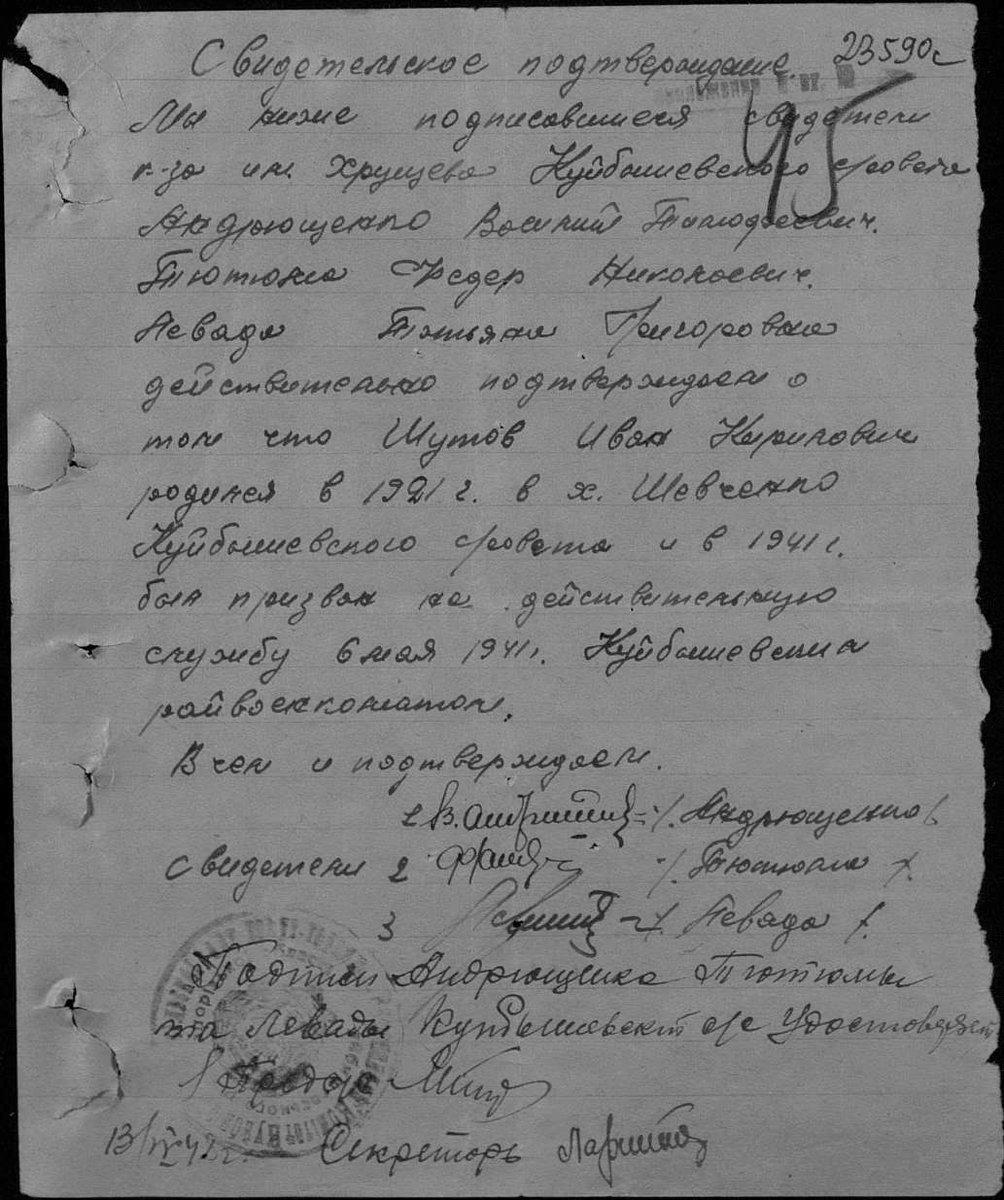 23590с
Свидетельское подтверждение.
45
Мы ниже подписавшиеся свидетели
к-за им. Хрущева Куйбышевского с/совета
Андрющенко Василий Тимофеевич.
Тютюма Федер Николаевич.
Левада Татьяна Григоровна
действительно подтверждаем о
том что Шутов Иван Кирилович
родился в 1921 г. в х. Шевченко
Куйбышевского с/совета и в 1941 г.
был призван на действительную
службу 6 мая 1941 г. Куйбышевским
райвоенкоматом.
В чем и подтверждаем.
/. Андрющенко /.
Свидетели 2 /. Тютюма /.
3 /. Левада /.
Подписи Андрющенка Тютюмы
та Левады Куйбышевский с/с Удостоверяет
Секретарь